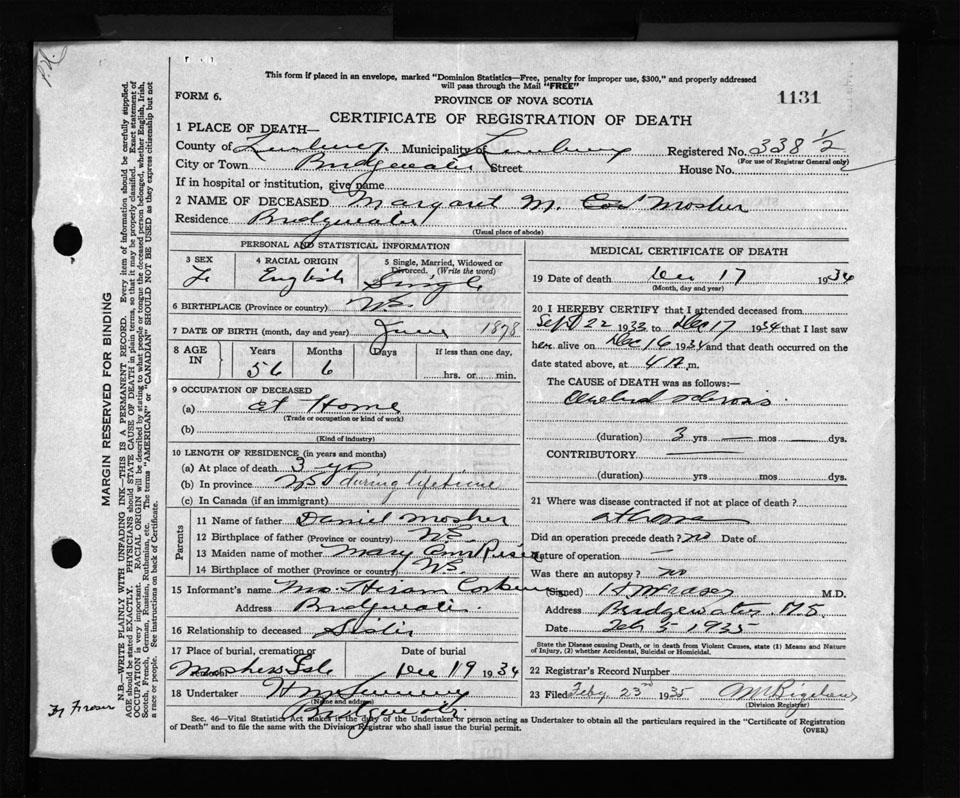 This form if placed in an envelope, marked "Dominion Statistics—Free, penalty for improper use, $300," and properly addressed
will pass through the Mail "FREE"
FORM 6.
PROVINCE OF NOVA SCOTIA
1131
CERTIFICATE OF REGISTRATION OF DEATH
1 PLACE OF DEATH—
County of Lunenburg Municipality Lunenburg Registered No. 338 1/2
(For use of Registrar General only)
City or Town Bridgewater Street House No.
If in hospital or institution, give name
2 NAME OF DECEASED Margaret M. Mosher
Residence Bridgewater
(Usual place of abode)
PERSONAL AND STATISTICAL INFORMATION
3 SEX 4 RACIAL ORIGIN 5 Single, Married, Widowed or
Divorced. (Write the word)
F. English Single
6 BIRTHPLACE (Province or country) N.S.
7 DATE OF BIRTH (month, day and year) June 1878
8 AGE IN Years Months Days If less than one day,
56 6 hrs. or min.
9 OCCUPATION OF DECEASED
(a) At Home
(Trade or occupation or kind of work)
(b)
(Kind of industry)
10 LENGTH OF RESIDENCE (in years and months)
(a) At place of death 3 yrs
(b) In province NS during lifetime
(c) In Canada (if an immigrant)
Parents
11 Name of father Daniel Mosher
12 Birthplace of father (Province or country) N.S.
13 Maiden name of mother Mary Ann
14 Birthplace of mother (Province or country) N.S.
15 Informant's name Mrs Hiram
Address Bridgewater
16 Relationship to deceased Sister
17 Place of burial, cremation or removal Date of burial
Moshers Isle Dec 19 1934
18 Undertaker H
(Name and address)
Bridgewater
MEDICAL CERTIFICATE OF DEATH
19 Date of death Dec 17 1934
(Month, day and year)
20 I HEREBY CERTIFY that I attended deceased from
Sept 22 1933 to Dec 17 1934 that I last saw
her alive on Dec 16 1934 and that death occurred on the
date stated above, at 4 A m.
The CAUSE of DEATH was as follows:—
Cerebral sclerosis
(duration) 3 yrs — mos — dys.
CONTRIBUTORY —
(duration) yrs. mos. dys.
21 Where was disease contracted if not at place of death?
at home
Did an operation precede death? no Date of
Nature of operation —
Was there an autopsy? no
(Signed) H Fraser M.D.
Address Bridgewater N.S.
Date Feb 5 1935
State the Disease causing Death, or in death from Violent Causes, state (1) Means and Nature
of Injury, (2) whether Accidental, Suicidal or Homicidal.
22 Registrar's Record Number
23 Filed Feby 23rd 1935 Bigelow
(Division Registrar)
Sec. 46—Vital Statistics Act makes it the duty of the Undertaker or person acting as Undertaker to obtain all the particulars required in the "Certificate of Registration
of Death" and to file the same with the Division Registrar who shall issue the burial permit. (OVER)
MARGIN RESERVED FOR BINDING
N.B.—WRITE PLAINLY WITH UNFADING INK—THIS IS A PERMANENT RECORD. Every item of information should be carefully supplied.
AGE should be stated EXACTLY. PHYSICIANS should STATE CAUSE OF DEATH in plain terms, so that it may be properly classified. Exact statement of
OCCUPATION is very important. RACIAL ORIGIN will be described by stating to what people or tongue the deceased person belonged, whether English, Irish,
Scotch, French, German, Russian, Ruthenian, etc. The terms "AMERICAN" or "CANADIAN" SHOULD NOT BE USED as they express citizenship but not
a race or people. See instructions on back of Certificate.